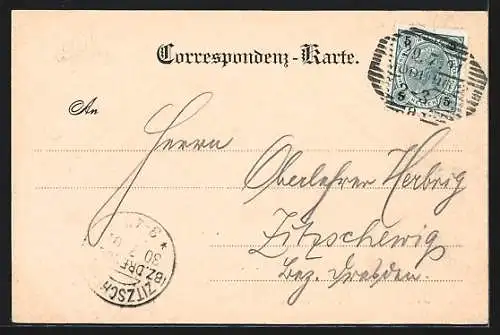 Correspondenz-Karte.
An
Herrn
Oberlehrer Herbrig
Zitzschewig
Bez. Dresden
ZITZSCH
(BZ. DRE
30 7
5 5
5 5